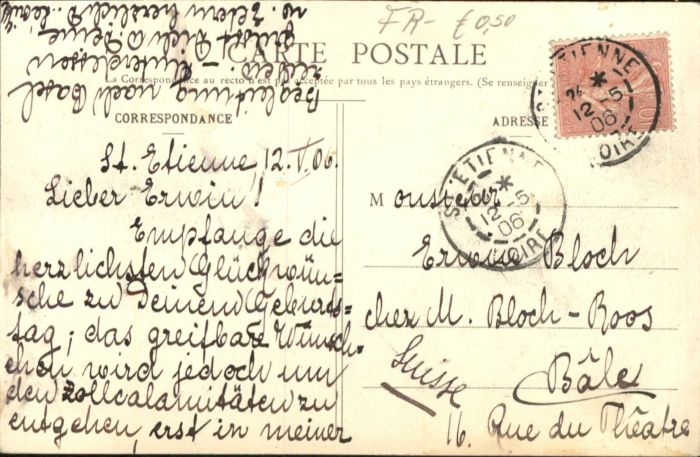 FR- €0,50
CARTE POSTALE
La Correspondance au recto n'est pas acceptée par tous les pays étrangers. (Se renseigner
CORRESPONDANCE
ADRESSE
St. Etienne, 12.V.06.
Lieber Erwin!
Empfange die
herzlichsten Glückwün-
sche zu Deinem Geburts-
tag; das greifbare Wünsch-
chen wird jedoch um
den Zollcalamitäten zu
entgehen, erst in meiner
Begleitung nach Basel
reisen. – Unterdessen
grüsst Dich u. Deine
w. Eltern herzlich
Monsieur
Erwin Bloch
chez M. Bloch-Roos
Bâle
Suisse
16. Rue du Théatre
ST-ETIENNE
*
12-5
06
LOIRE
ST-ETIENNE
*
12-5
06
LOIRE
10